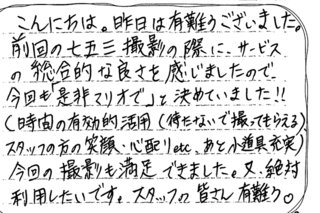 こんにちは。昨日は有難うございました。
前回の七五三撮影の際に、サービス
の総合的な良さを感じましたので、
今回も「是非マリオで」と決めていました!!
(時間の有効的活用(待たないで撮ってもらえる)
スタッフの方の笑顔・心配りetc、あと小道具充実)
今回の撮影も満足できました。又、絶対
利用したいです。スタッフの皆さん有難う。